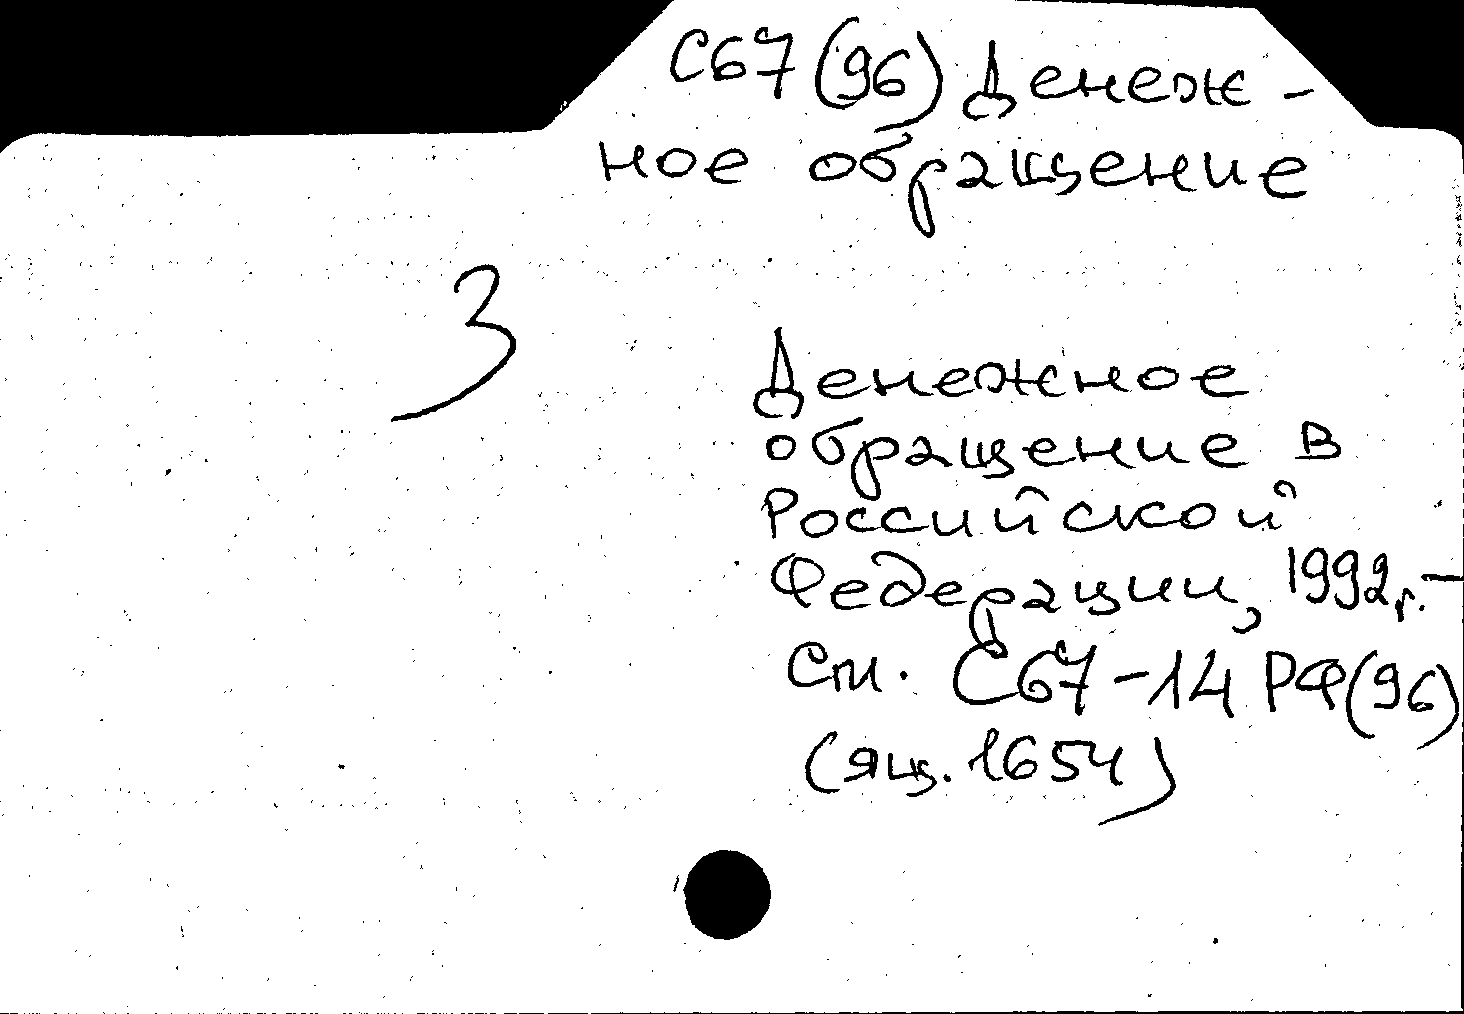 С67(96) Денеж-
ное обращение
3
Денежное
обращение в
Российской
Федерации, 1992г.-
См. С67-14 РФ(96)
(ящ. 1654)